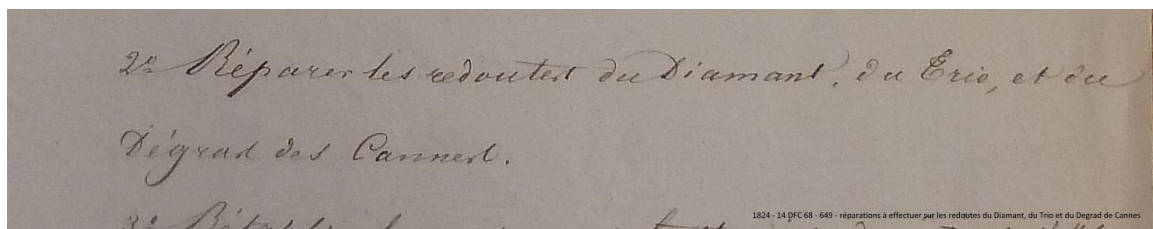 2º Réparer les redoutes du Diamant, du Trio, et du
Dégrad des Cannes.
3º Rétablir
1824 - 14 DFC 68 - 649 - réparations à effectuer sur les redoutes du Diamant, du Trio et du Degrad de Cannes